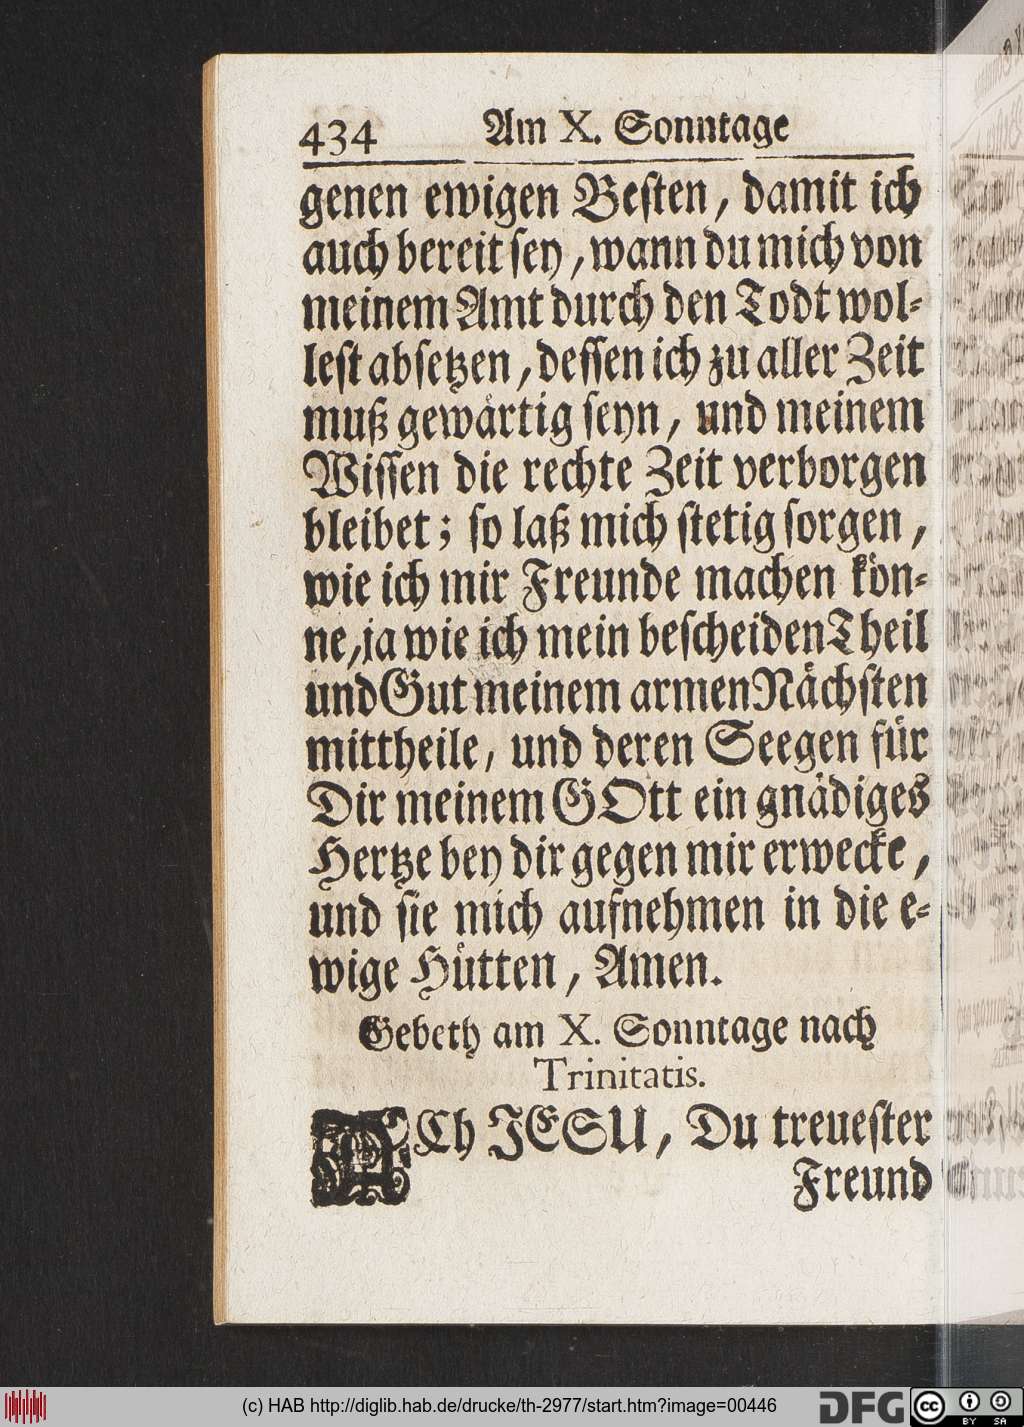 434 Am X. Sonntage
genen ewigen Besten, damit ich
auch bereit sey, wann du mich von
meinem Amt durch den Todt wol-
lest absetzen, dessen ich zu aller Zeit
muß gewärtig seyn, und meinem
Wissen die rechte Zeit verborgen
bleibet; so laß mich stetig sorgen,
wie ich mir Freunde machen kön-
ne, ja wie ich mein bescheiden Theil
und Gut meinem armen Nächsten
mittheile, und deren Seegen für
Dir meinem GOtt ein gnädiges
Hertze bey dir gegen mir erwecke,
und sie mich aufnehmen in die e-
wige Hütten, Amen.
Gebeth am X. Sonntage nach
Trinitatis.
ACh JESU, Du treuester
Freund
(c) HAB http://diglib.hab.de/drucke/th-2977/start.htm?image=00446
DFG
cc BY SA